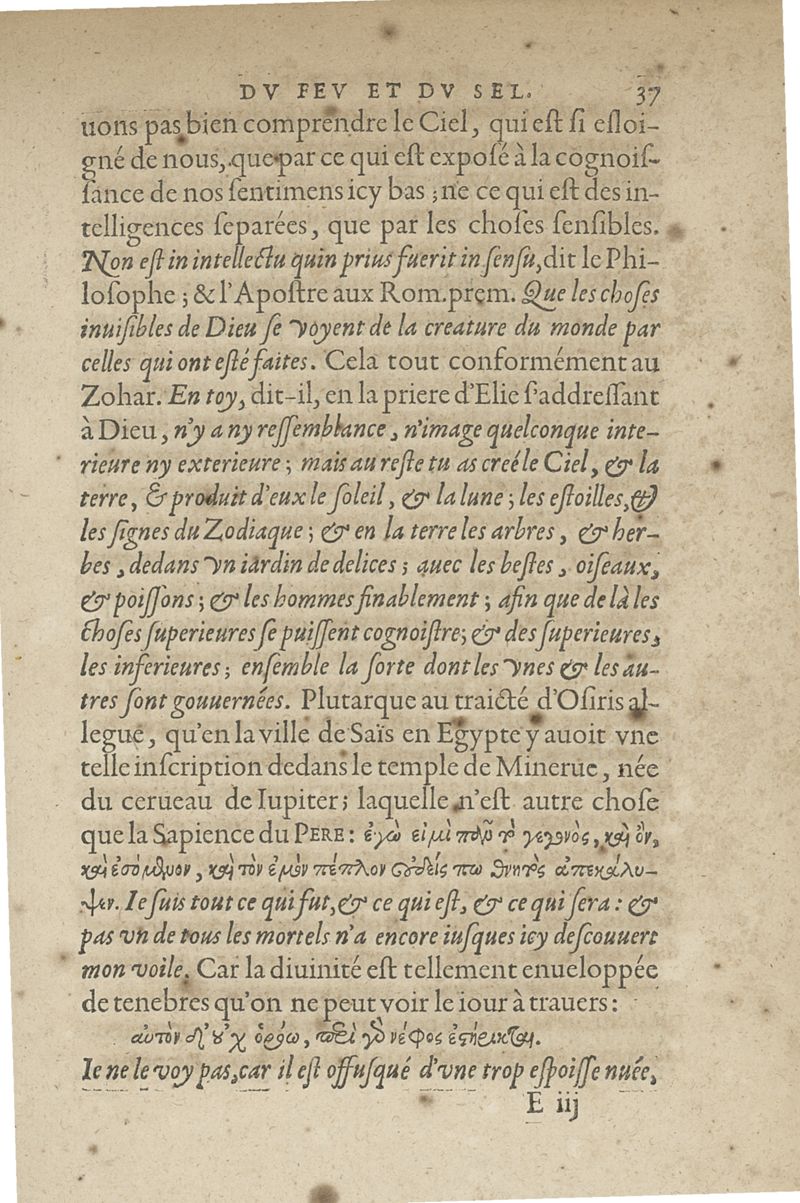 DV FEV ET DV SEL. 37
uons pas bien comprendre le Ciel, qui eſt ſi eſloi-
gné de nous, que par ce qui eſt expoſé à la cognoiſ-
ſance de nos ſentimens icy bas ; ne ce qui eſt des in-
telligences ſeparées, que par les choſes ſenſibles.
Non eſt in intellectu quin prius fuerit in ſenſu, dit le Phi-
loſophe ; & l'Apoſtre aux Rom. prem. Que les choſes
inuiſibles de Dieu ſe voyent de la creature du monde par
celles qui ont eſté faites. Cela tout conformément au
Zohar. En toy, dit-il, en la priere d'Elie s'addreſſant
à Dieu, n'y a ny reſſemblance, n'image quelconque inte-
rieure ny exterieure ; mais au reſte tu as creé le Ciel, & la
terre, & produit d'eux le ſoleil, & la lune ; les eſtoilles, &
les ſignes du Zodiaque ; & en la terre les arbres, & her-
bes, dedans vn iardin de delices ; auec les beſtes, oiſeaux,
& poiſſons ; & les hommes finablement ; afin que de là les
choſes ſuperieures ſe puiſſent cognoiſtre; & des ſuperieures,
les inferieures ; enſemble la ſorte dont les vnes & les au-
tres ſont gouuernées. Plutarque au traicté d'Oſiris al-
legue, qu'en la ville de Saïs en Egypte y auoit vne
telle inſcription dedans le temple de Minerue, née
du cerueau de Iupiter; laquelle n'eſt autre choſe
que la Sapience du PERE : ἐγὼ εἰμὶ πᾶν τὸ γεγονὸς, καὶ ὂν,
καὶ ἐσόμενον, καὶ τὸν ἐμὸν πέπλον οὐδείς πω θνητὸς ἀπεκάλυ-
ψεν. Ie ſuis tout ce qui fut, & ce qui eſt, & ce qui ſera : &
pas vn de tous les mortels n'a encore iuſques icy deſcouuert
mon voile. Car la diuinité eſt tellement enueloppée
de tenebres qu'on ne peut voir le iour à trauers :
αὐτὸν δ' οὐχ ὁρόω, περὶ γὰρ νέφος ἐστήρικται.
Ie ne le voy pas, car il eſt offuſqué d'vne trop eſpoiſſe nuée,
E iij